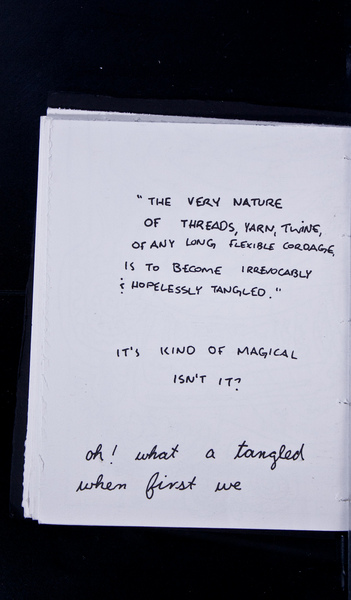 "THE VERY NATURE
OF THREADS, YARN, TWINE,
OF ANY LONG FLEXIBLE CORDAGE,
IS TO BECOME IRREVOCABLY
& HOPELESSLY TANGLED."
IT'S KIND OF MAGICAL
ISN'T IT?
oh! what a tangled
when first we